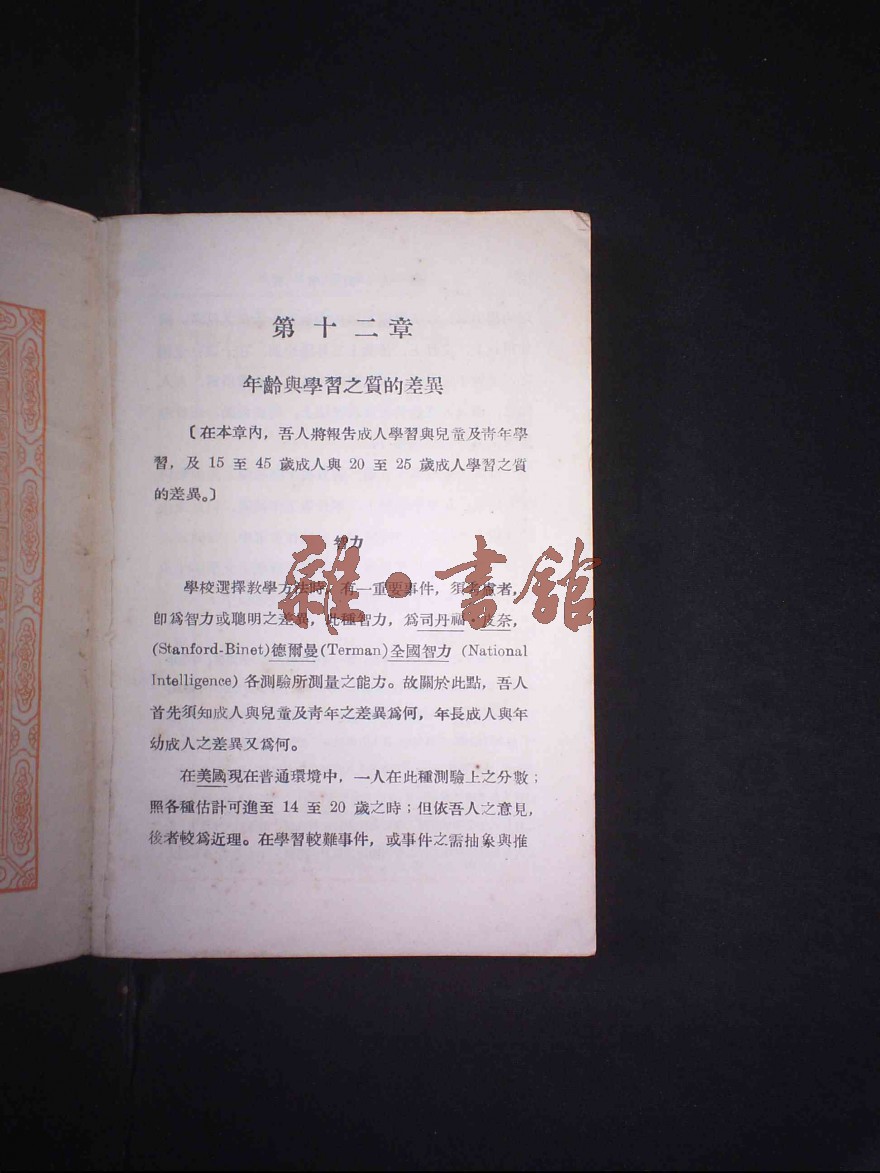 第十二章
年齡與學習之質的差異
〔在本章內，吾人將報告成人學習與兒童及靑年學
習，及 15 至 45 歲成人與 20 至 25 歲成人學習之質
的差異。〕
智力
學校選擇教學方法時，有一重要事件，須考慮者，
卽爲智力或聰明之差異，此種智力，爲司丹福·皮奈，
(Stanford-Binet)德爾曼(Terman)全國智力 (National
Intelligence) 各測驗所測量之能力。故關於此點，吾人
首先須知成人與兒童及靑年之差異爲何，年長成人與年
幼成人之差異又爲何。
在美國現在普通環境中，一人在此種測驗上之分數；
照各種估計可進至 14 至 20 歲之時；但依吾人之意見，
後者較爲近理。在學習較難事件，或事件之需抽象與推
雜·書館